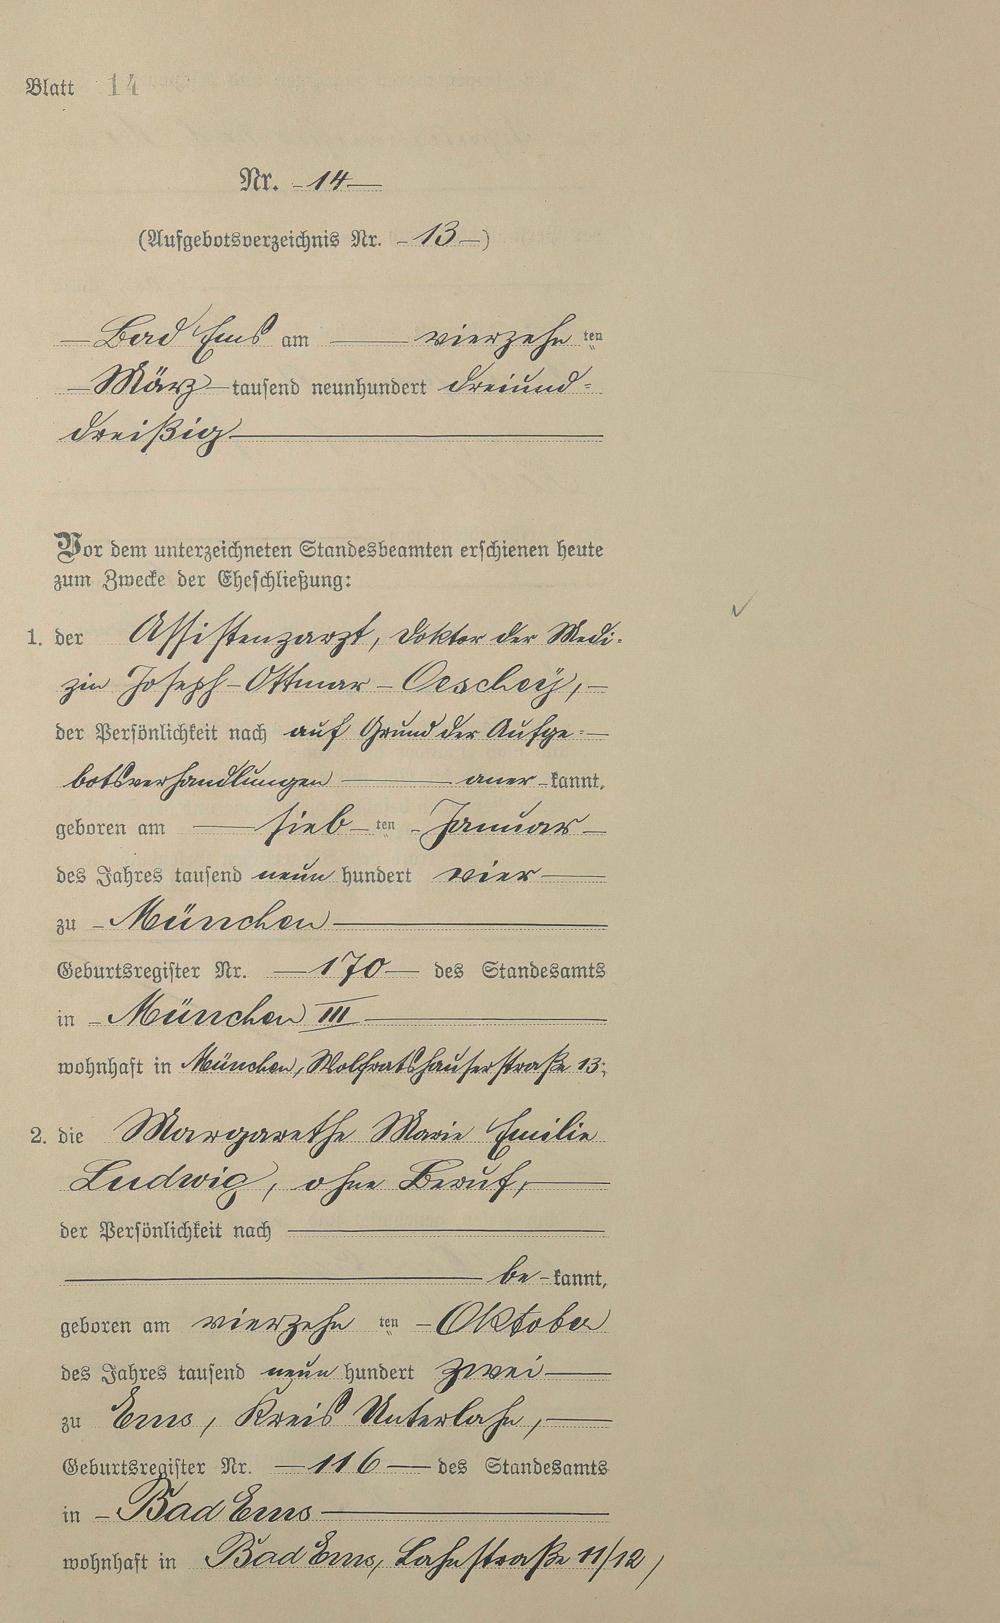 Blatt 14
Nr. – 14 —
(Aufgebotsverzeichnis Nr. – 13 –)
— Bad Ems am —— vierzehn ten
– März – tausend neunhundert dreiund-
dreißig ——
Vor dem unterzeichneten Standesbeamten erschienen heute
zum Zwecke der Eheschließung:
1. der Assistenzarzt, Doktor der Medi-
zin Joseph – Ottmar – Oeschey, –
der Persönlichkeit nach auf Grund der Aufge- —
botsverhandlungen —— aner – kannt,
geboren am —— sieb – ten – Januar –
des Jahres tausend neun hundert vier ——
zu – München ——
Geburtsregister Nr. — 170 — des Standesamts
in – München III ——
wohnhaft in München, Wolfratshauserstraße 13;
2. die Margarethe Marie Emilie
Ludwig, ohne Beruf, ——
der Persönlichkeit nach ——
—— be – kannt,
geboren am vierzehn ten – Oktober
des Jahres tausend neun hundert zwei ——
zu Ems, Kreis Unterlahn, ——
Geburtsregister Nr. — 116 — des Standesamts
in – Bad Ems ——
wohnhaft in Bad Ems, Lahnstraße 11/12,